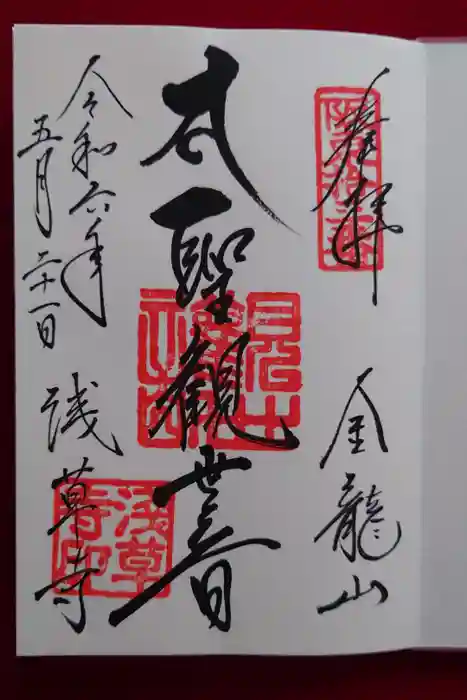 奉拝
金龍山
本聖観世音
令和六年
五月二十一日
浅草寺
浅草寺印